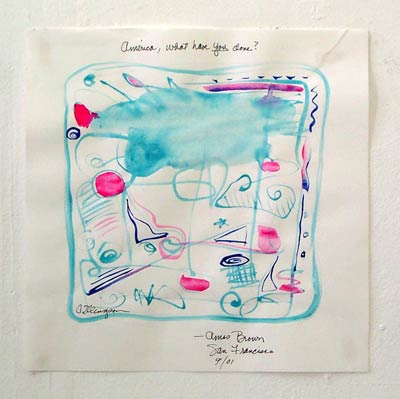 América, what have you done?
— Amos Brown
San Francisco
9/01